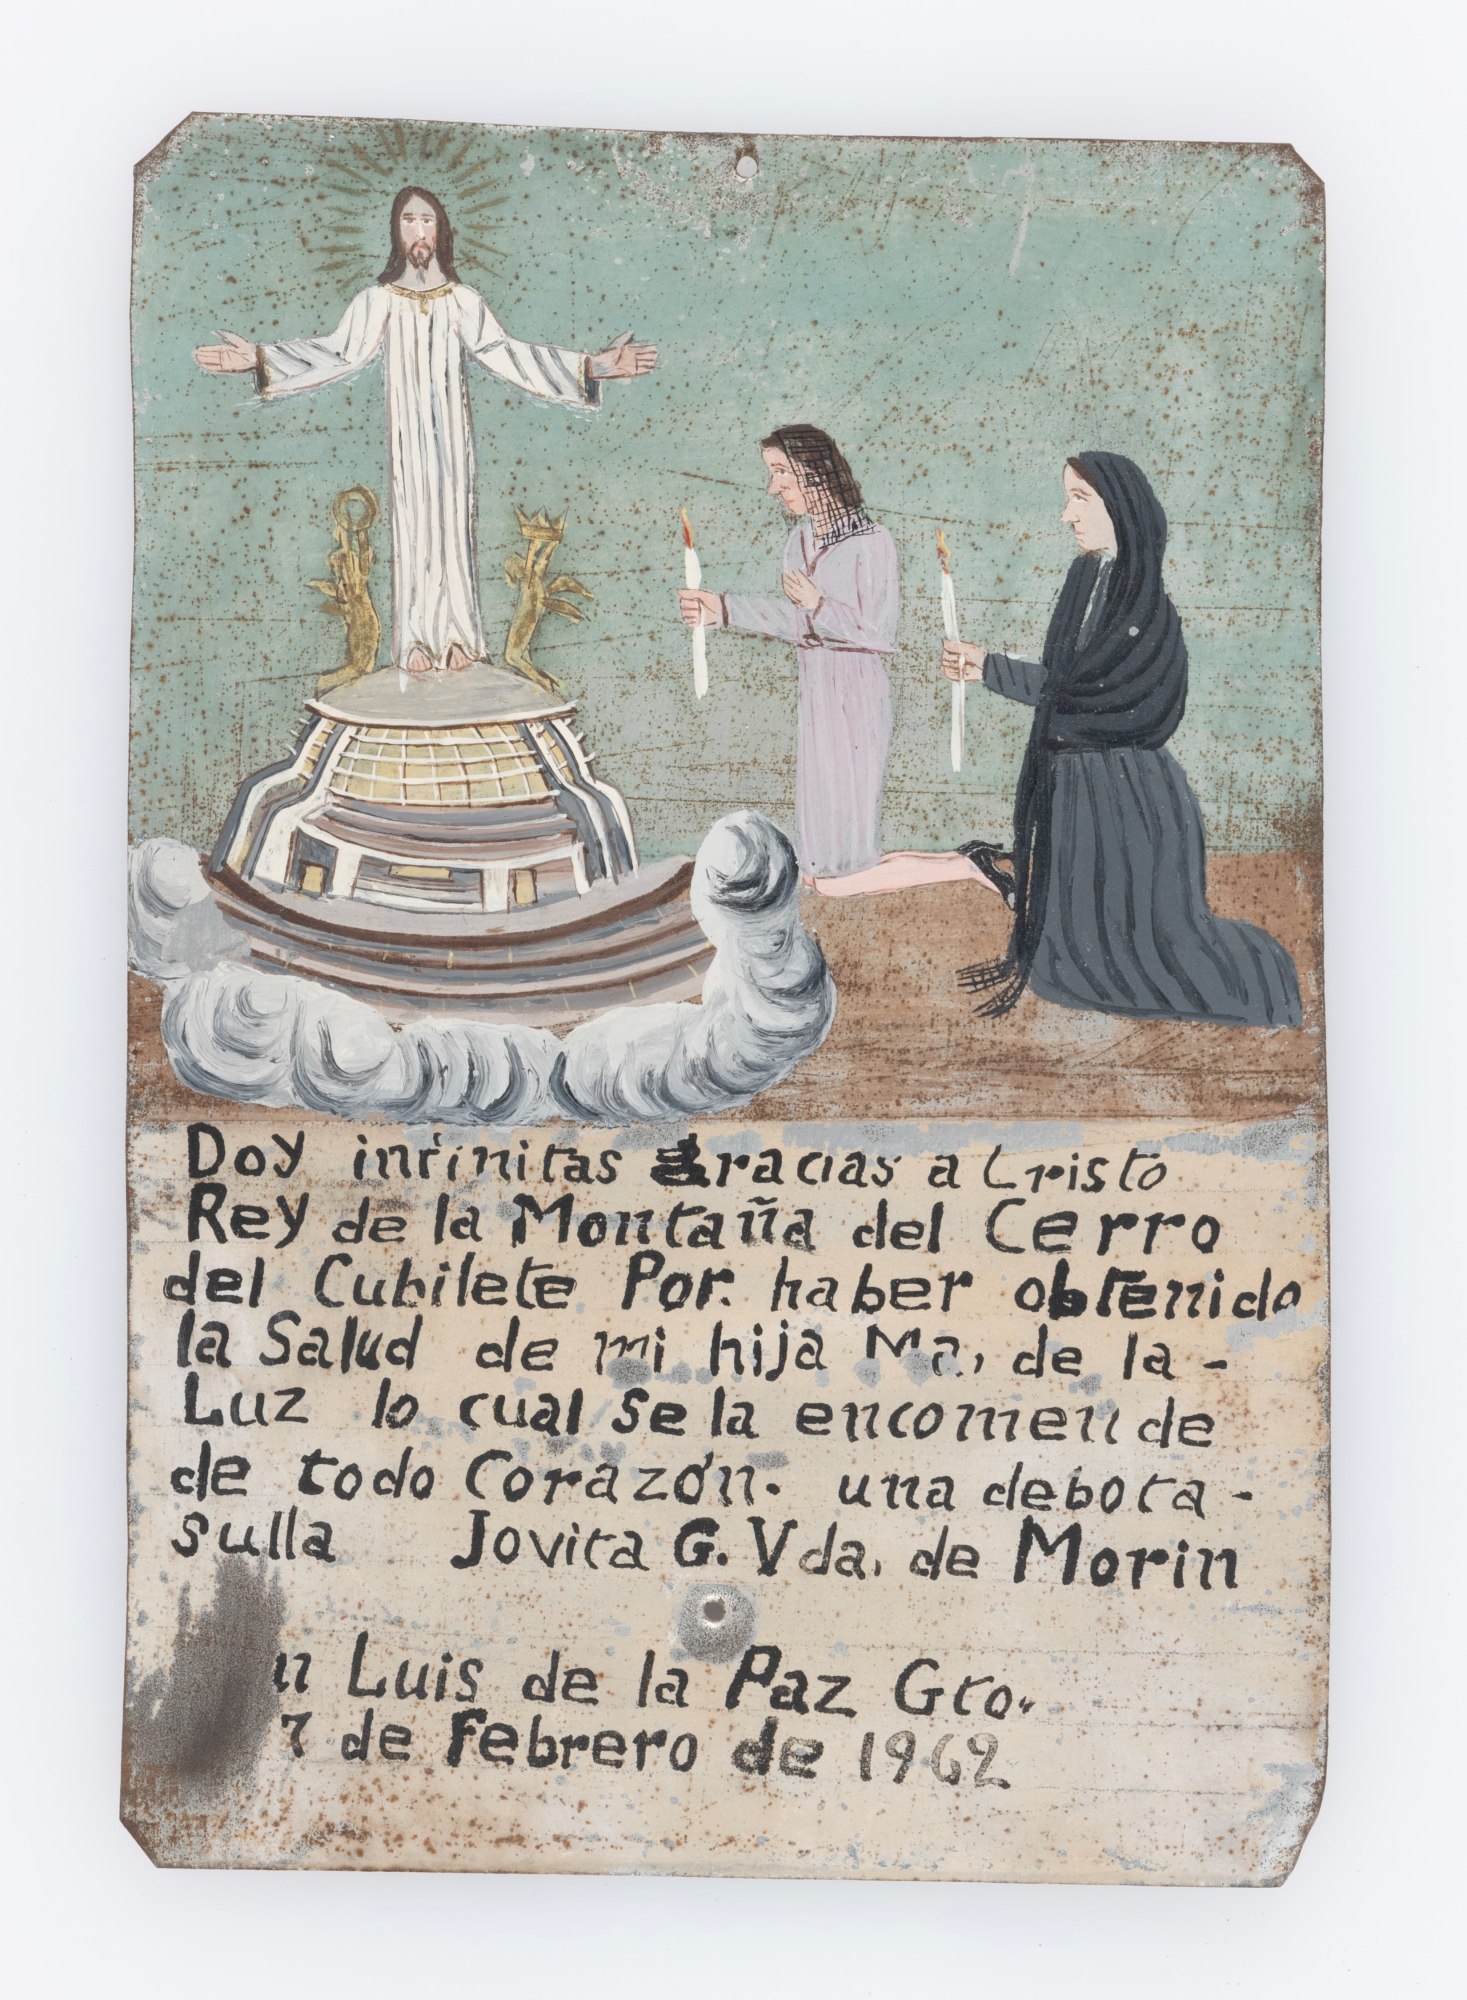 Doy infinitas gracias a Cristo
Rey de la Montaña del Cerro
del Cubilete Por haber obtenido
la Salud de mi hija Ma, de la -
Luz lo cual se la encomende
de todo Corazón. una debota -
sulla Jovita G. Vda. de Morin
n Luis de la Paz Gto.
7 de Febrero de 1962